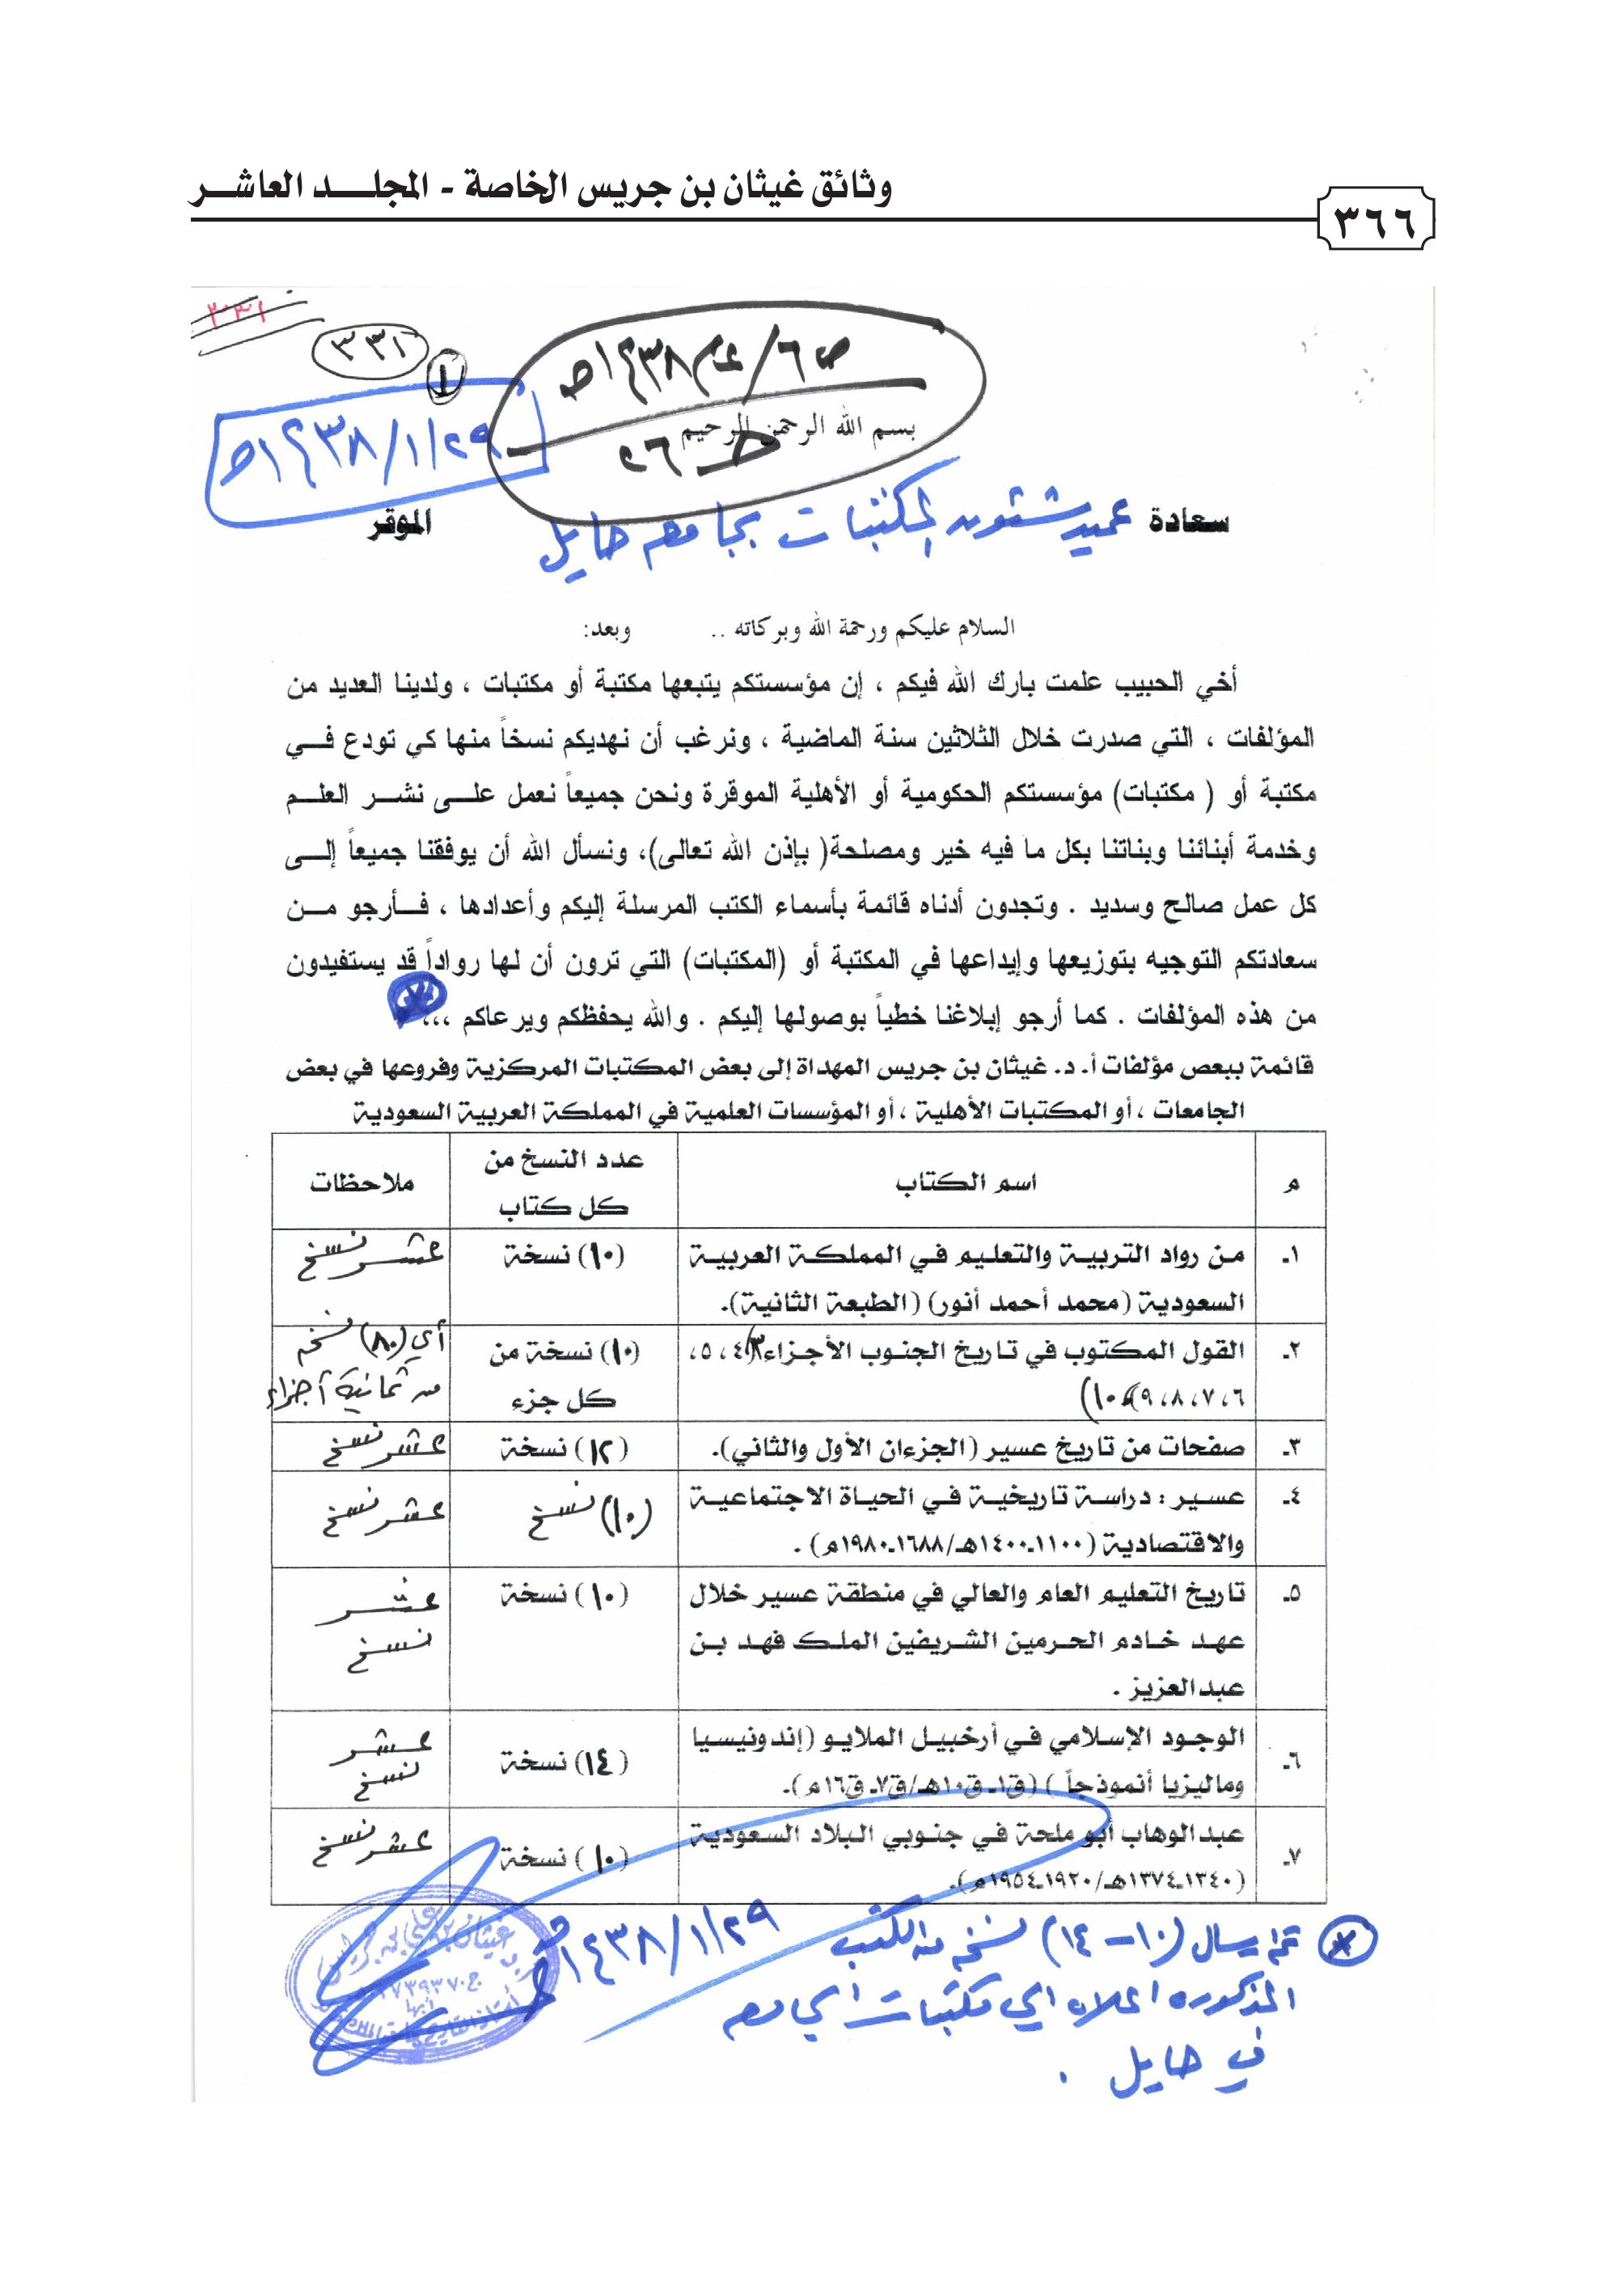 وثائق غيثان بن جريس الخاصة - المجلـــد العاشـــر
٣٦٦
٣٣١
٣٣١
١
ص٦/عام ١٤٣٨هـ
٢٦
١٤٣٨/١/٢٩هـ
بسم الله الرحمن الرحيم
سعادة عميد شئون المكتبات بجامعه حايل الموقر
السلام عليكم ورحمة الله وبركاته .. وبعد:
أخي الحبيب علمت بارك الله فيكم ، إن مؤسستكم يتبعها مكتبة أو مكتبات ، ولدينا العديد من
المؤلفات ، التي صدرت خلال الثلاثين سنة الماضية ، ونرغب أن نهديكم نسخاً منها كي تودع فــي
مكتبة أو ( مكتبات) مؤسستكم الحكومية أو الأهلية الموقرة ونحن جميعاً نعمل علــى نشــر العلــم
وخدمة أبنائنا وبناتنا بكل ما فيه خير ومصلحة( بإذن الله تعالى)، ونسأل الله أن يوفقنا جميعاً إلــى
كل عمل صالح وسديد . وتجدون أدناه قائمة بأسماء الكتب المرسلة إليكم وأعدادها ، فــأرجو مــن
سعادتكم التوجيه بتوزيعها وإيداعها في المكتبة أو (المكتبات) التي ترون أن لها رواداً قد يستفيدون
من هذه المؤلفات . كما أرجو إبلاغنا خطياً بوصولها إليكم . والله يحفظكم ويرعاكم ،،،
قائمة ببعص مؤلفات أ. د. غيثان بن جريس المهداة إلى بعض المكتبات المركزية وفروعها في بعض
الجامعات ، أو المكتبات الأهلية ، أو المؤسسات العلمية في المملكة العربية السعودية
م اسم الكتاب عدد النسخ من كل كتاب ملاحظات
١ـ من رواد التربيـة والتعليـم في المملكـة العربيـة (١٠) نسخة عشر نسخ
السعودية (محمد أحمد أنور) (الطبعة الثانية).
٢ـ القول المكتوب في تاريخ الجنوب الأجزاء(٣، ٤، ٥، (١٠) نسخة من أي (٨٠) نسخه
٦، ٧، ٨، ٩، ١٠) كل جزء من ثمانية أجزاء
٣ـ صفحات من تاريخ عسير (الجزءان الأول والثاني). (١٢) نسخة عشر نسخ
٤ـ عسيـر : دراسـة تاريخيـة في الحياة الاجتماعيـة (١٠) نسخ عشر نسخ
والاقتصادية (١١٠٠ـ١٤٠٠هـ/١٦٨٨ـ١٩٨٠م) .
٥ـ تاريخ التعليم العام والعالي في منطقة عسير خلال (١٠) نسخة عشر
عهـد خـادم الحـرمين الشـريفين الملـك فهـد بـن نسخ
عبدالعزيز .
٦ـ الوجـود الإسلامي في أرخبيـل الملايـو (إندونيسيا (١٤) نسخة عشر
وماليزيا أنموذجاً ) (ق١ـ ق١٠هـ/ق٧ـ ق١٦م). نسخ
٧ـ عبدالوهاب أبو ملحة في جنـوبي البـلاد السعودية (١٠) نسخة عشر نسخ
(١٣٤٠ـ١٣٧٤هـ/١٩٢٠ـ١٩٥٤م).
تم ارسال (١٠-١٤) نسخه من الكتب ١٤٣٨/١/٢٩هـ
المذكوره اعلاه الى مكتبات الجامعه
في حايل .